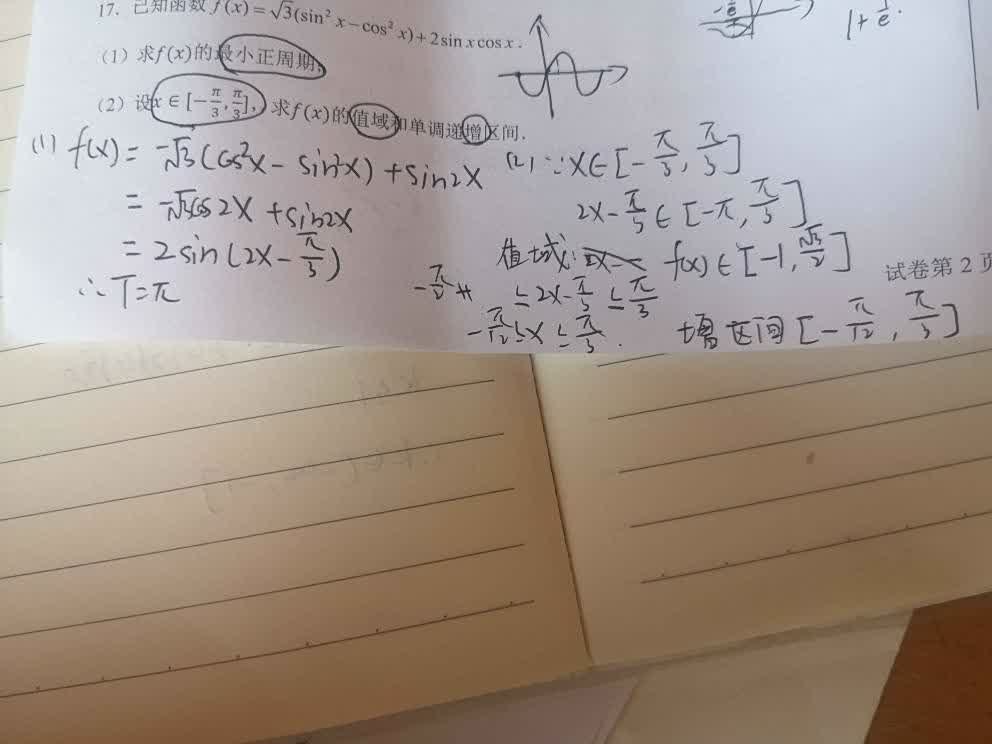 17. 已知函数 f(x)=√3(sin²x−cos²x)+2sinxcosx.
(1) 求f(x)的最小正周期.
(2) 设x∈[−π/3, π/3], 求f(x)的值域和单调递增区间.
(1) f(x) = −√3(cos²x − sin²x) + sin2x
= −√3cos2x + sin2x
= 2sin(2x − π/3)
∴T=π
(2) ∵x∈[−π/3, π/3]
2x−π/3∈[−π, π/3]
值域: f(x)∈[−1, √3/2]
−π/2 ≤2x−π/3≤π/3
−π/12≤x≤π/3.
增区间[−π/12, π/3]
1+1/e.
试卷第2页